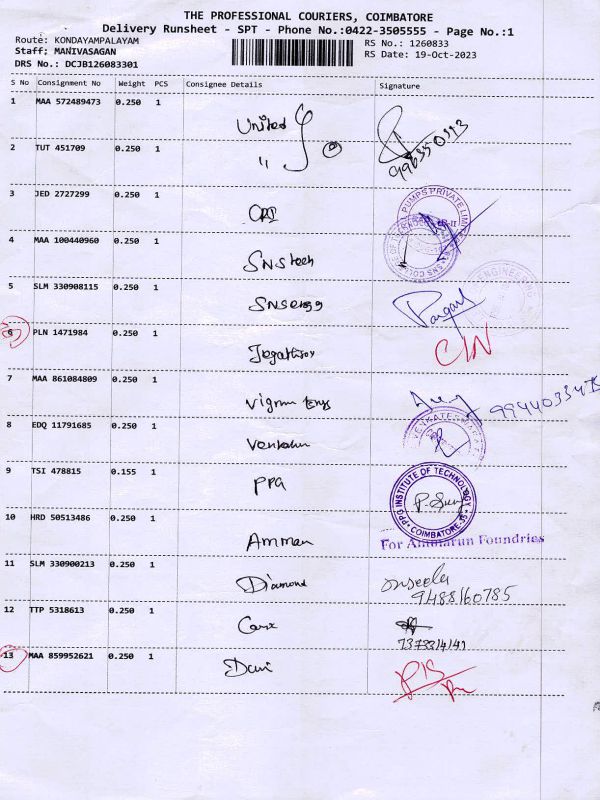 THE PROFESSIONAL COURIERS, COIMBATORE
Delivery Runsheet - SPT - Phone No.:0422-3505555 - Page No.:1
Route: KONDAYAMPALAYAM
RS No.: 1260833
Staff; MANIVASAGAN
RS Date: 19-Oct-2023
DRS No.: DCJB126083301
S No Consignment No Weight PCS Consignee Details Signature
1 MAA 572489473 0.250 1 United
2 TUT 451709 0.250 1 "
3 JED 2727299 0.250 1 CRI
PUMPS PRIVATE
4 MAA 100440960 0.250 1 SNS tech
5 SLM 330908115 0.250 1
ENGINEERING
6 PLN 1471984 0.250 1
7 MAA 861084809 0.250 1
8 EDQ 11791685 0.250 1
9 TSI 478815 0.155 1 PPG
PPG INSTITUTE OF TECHNOLOGY
COIMBATORE-35
10 HRD 50513486 0.250 1 Amman
For Foundries
11 SLM 330900213 0.250 1 Diamond
9488160785
12 TTP 5318613 0.250 1
13 MAA 859952621 0.250 1